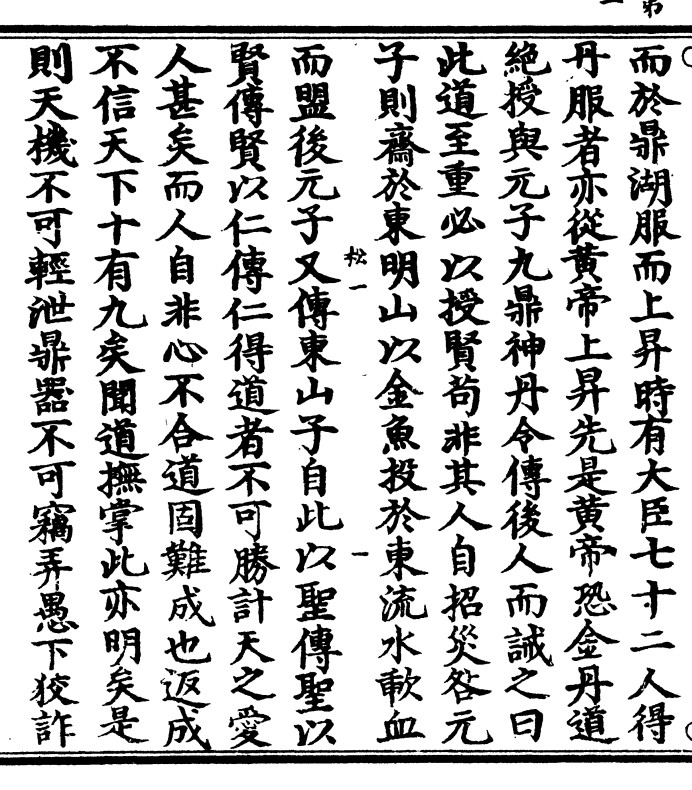 而於鼎湖服而上昇時有大臣七十二人得
丹服者亦從黃帝上昇先是黃帝恐金丹道
絕授與元子九鼎神丹令傳後人而誡之曰
此道至重必以授賢茍非其人自招災咎元
子則齋於東明山以金魚投於東流水歃血
松一
一
而盟後元子又傳東山子自此以聖傳聖以
賢傳賢以仁傳仁得道者不可勝計天之愛
人甚矣而人自非心不合道固難成也返成
不信天下十有九矣聞道撫掌此亦明矣是
則天機不可輕泄鼎器不可竊弄愚下狡詐